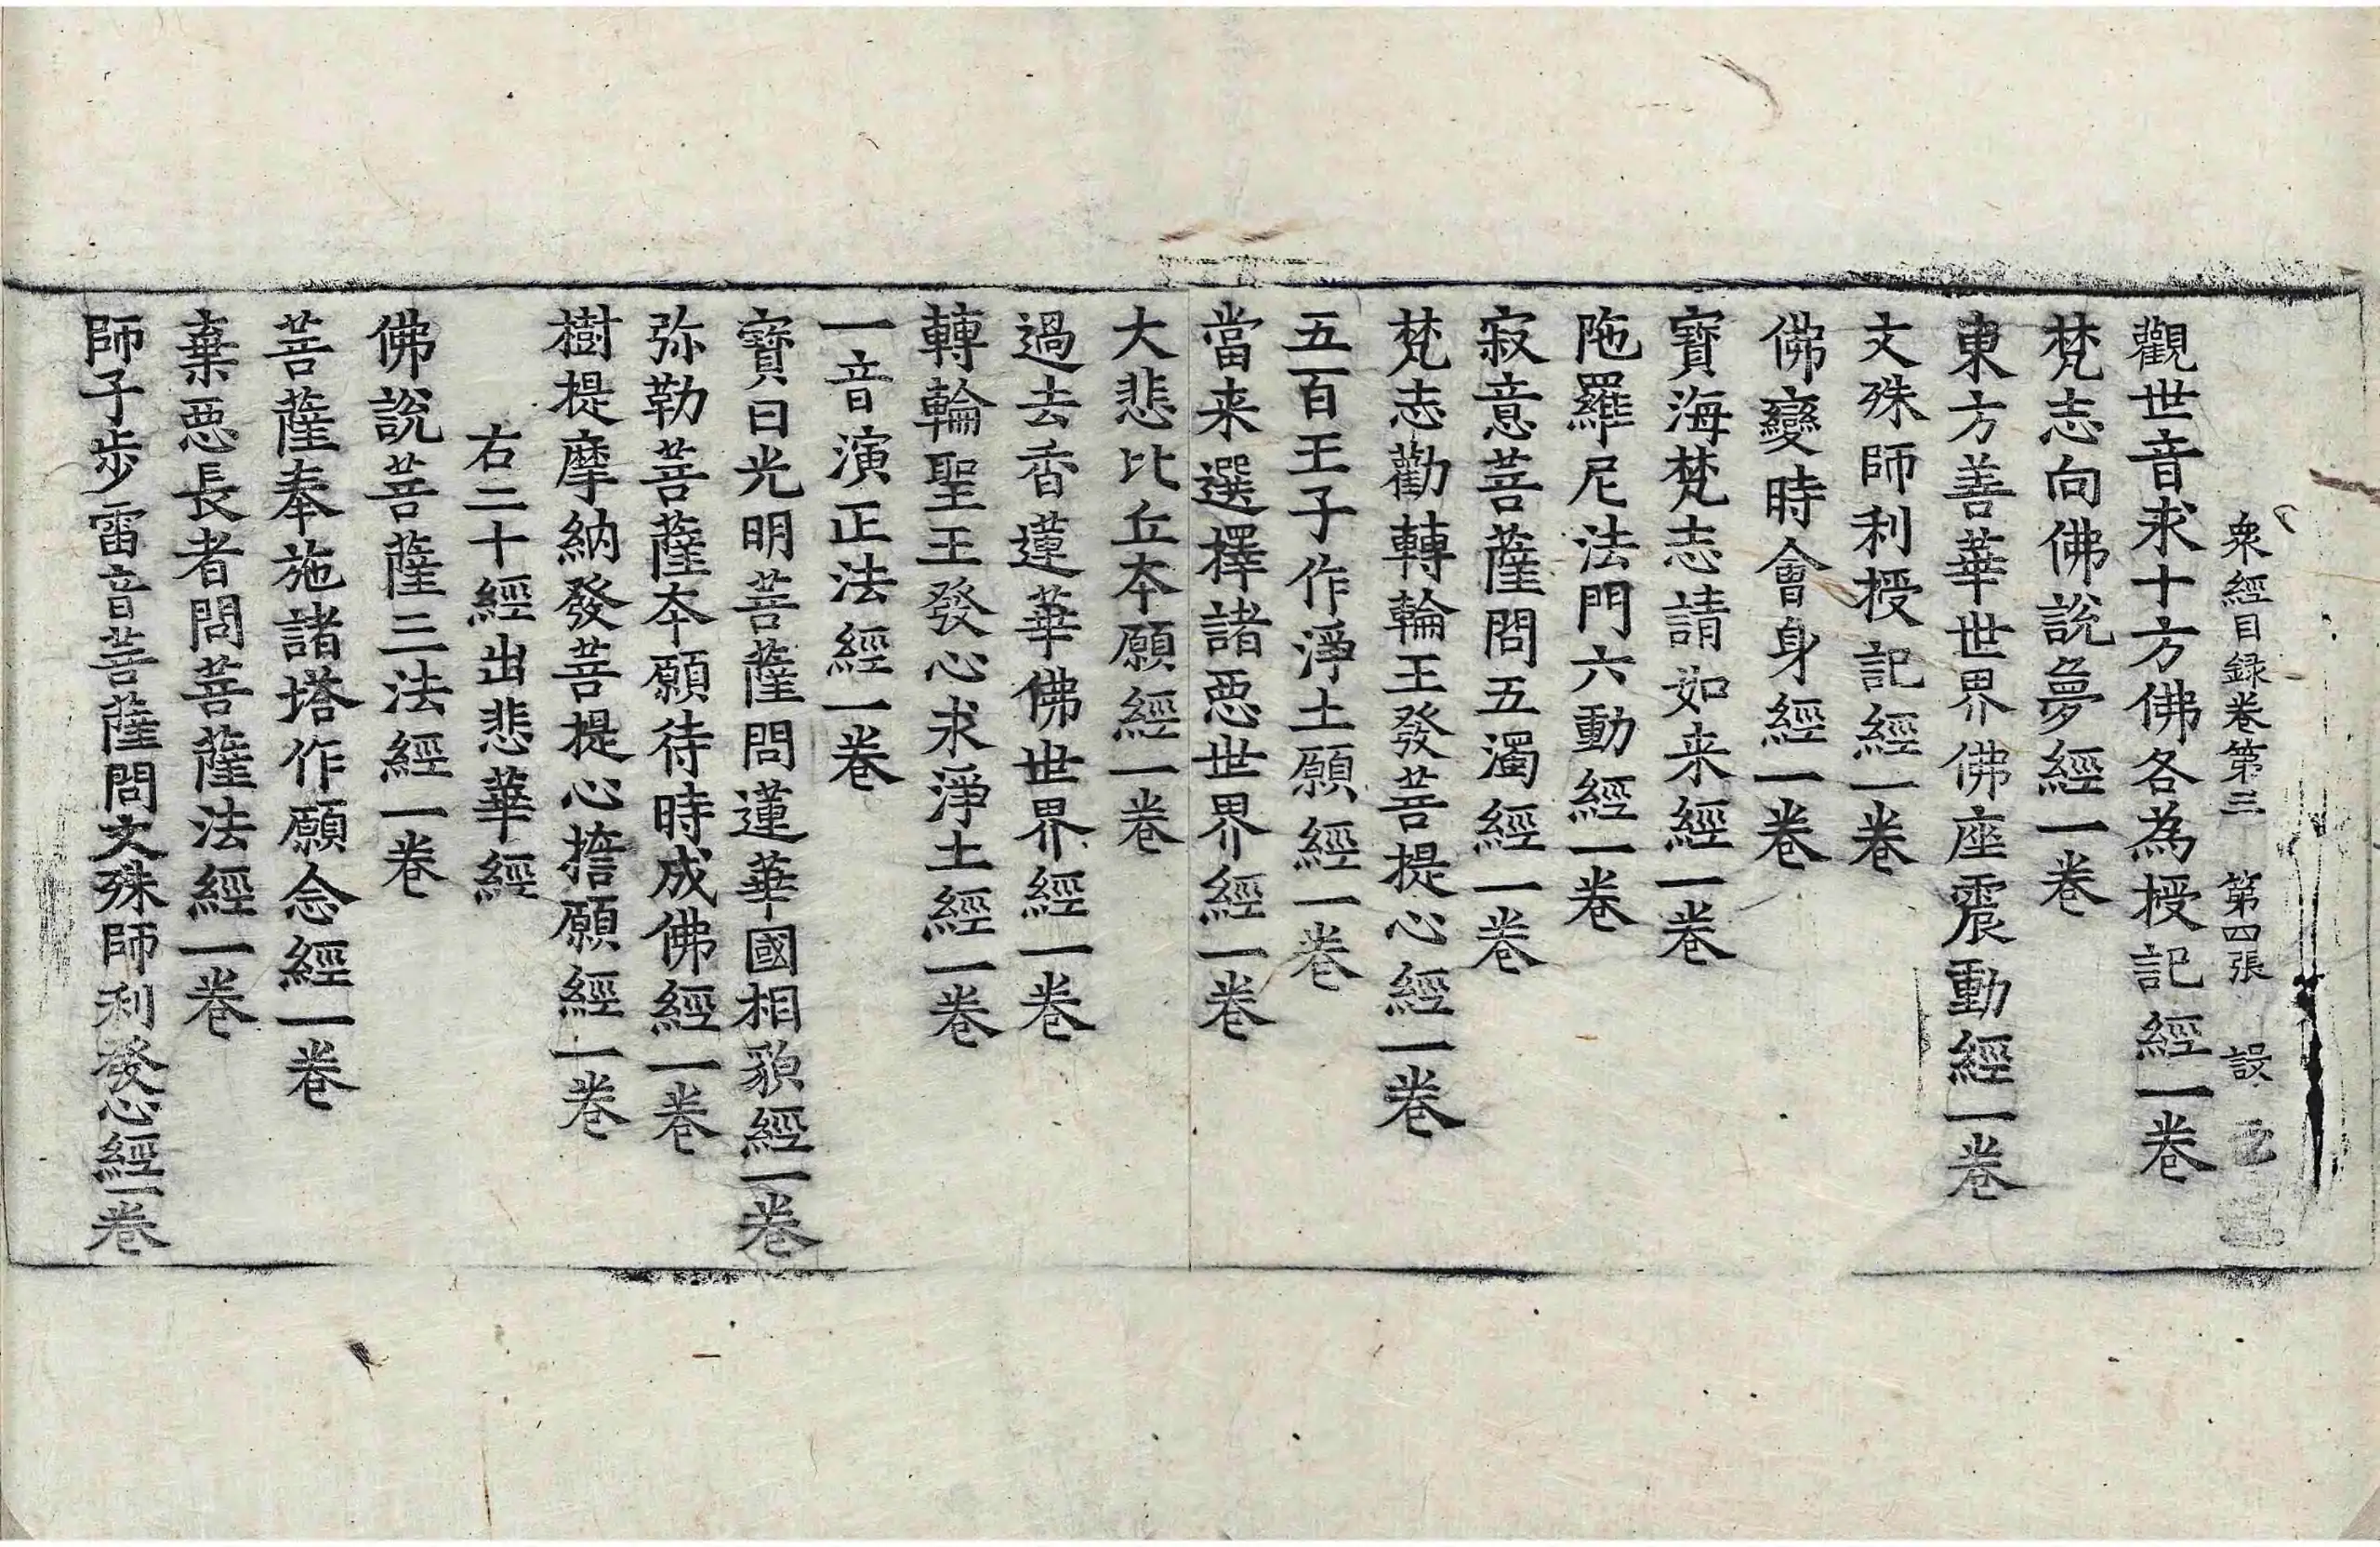 衆經目録卷第三 第四張 設
觀世音求十方佛各為授記經一卷
梵志向佛說夢經一卷
東方善華世界佛座震動經一卷
文殊師利授記經一卷
佛變時會身經一卷
寶海梵志請如来經一卷
陁羅尼法門六動經一卷
寂意菩薩問五濁經一卷
梵志勸轉輪王發菩提心經一卷
五百王子作淨土願經一卷
當来選擇諸惡世界經一卷
大悲比丘本願經一卷
過去香蓮華佛世界經一卷
轉輪聖王發心求淨土經一卷
一音演正法經一卷
寶日光明菩薩問蓮華國相貌經一卷
弥勒菩薩本願待時成佛經一卷
樹提摩納發菩提心擔願經一卷
右二十經出悲華經
佛說菩薩三法經一卷
菩薩奉施諸塔作願念經一卷
棄惡長者問菩薩法經一卷
師子步雷音菩薩問文殊師利發心經一卷